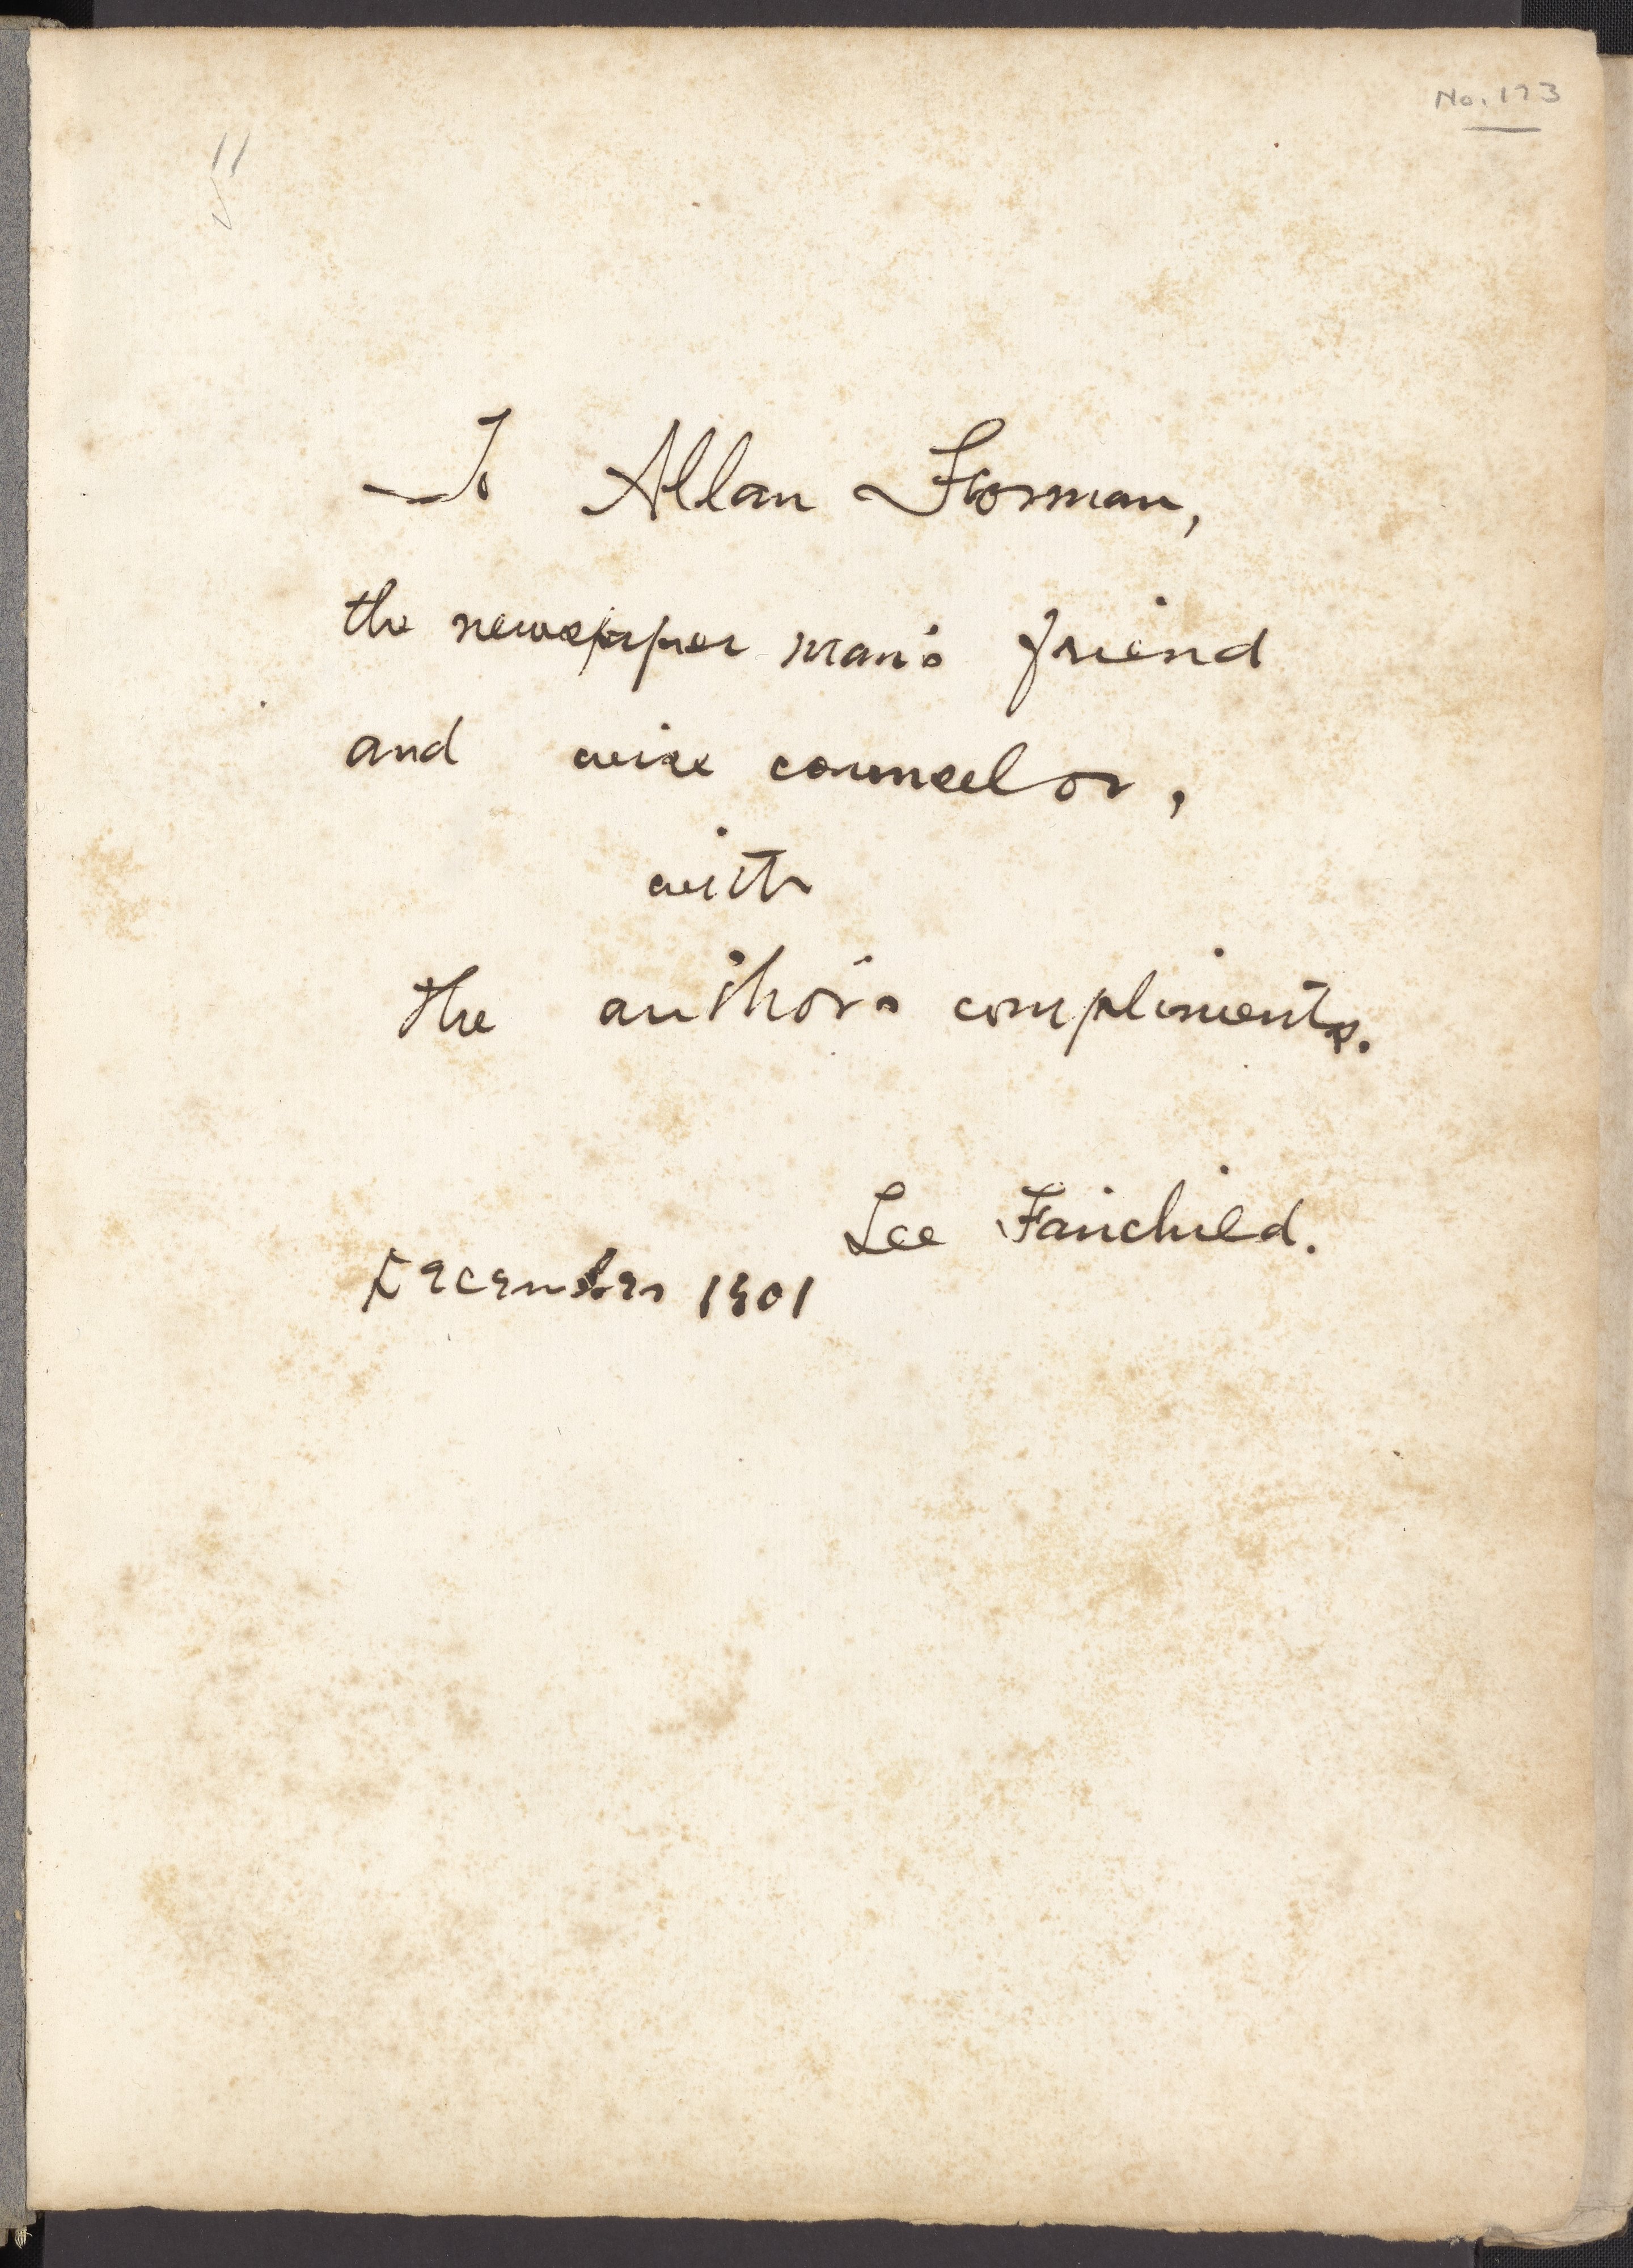 No. 173
To Allan Forman,
the newspaper man's friend
and wise counselor,
with
the author's compliments.
Lee Fairchild.
December 1901